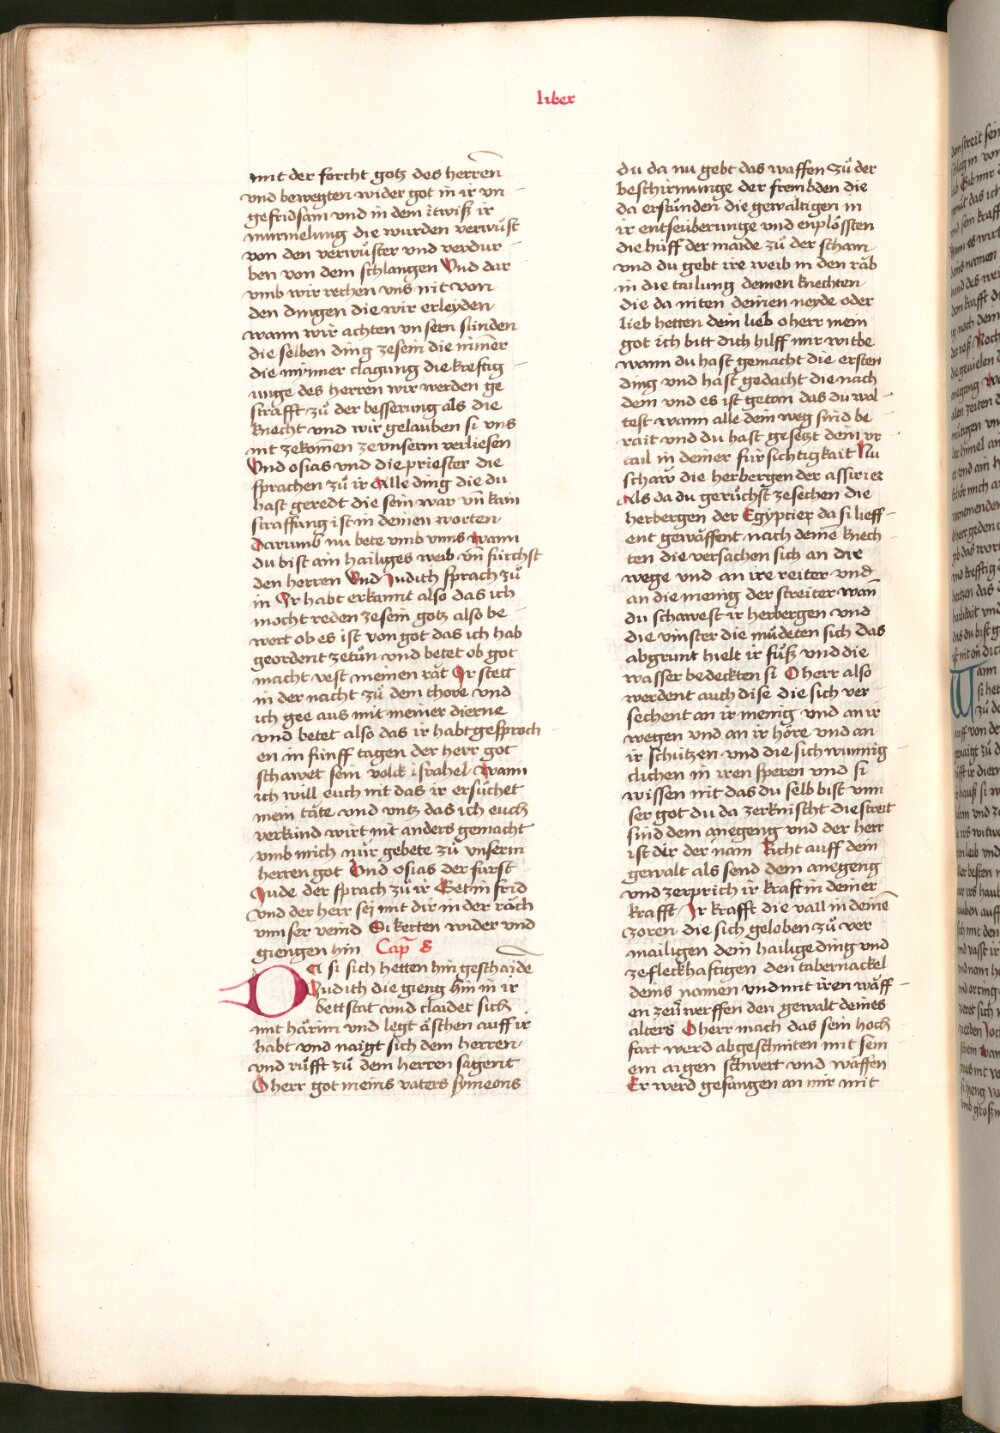 liber
mit der forcht gotz des herren̄
vnd bewegten wider got in ir vn
gefridsam vnd in dem itwiß ir
murmelung die wurden verwuͤst
von den verwuͤster vnd verdur
ben von dem schlangen Vnd dar
vmb wir rechen vns nit von
den dingen die wir erleyden
wann wir achten vnsern sünden
die selben ding zesein die minner
die mynner clagung die kreftig
unge des herren wir werden ge
strafft zuͦ der besserung als die
knecht vnd wir gelauben si vns
nit zekomen ze vnserm verliesen
Vnd osias vnd die priester die
sprachen zuͦ ir Alle ding die du
hast geredt die sein war vn̄ kain
straffung ist in deinen worten
Darumb nu bete vmb vnns wann
du bist ain hailiges weib vn̄ fürchst
den herren Vnd Judith sprach zuͦ
in Ir habt erkannt also das ich
mocht reden zesein gotz also be
wert ob es ist von got das ich hab
geordent zetuͦn vnd betet ob got
macht vest meinen rat Ir stett
in der nacht zuͦ dem thore vnd
ich gee aus mit meiner dierne
vnd betet also das ir habt gesproch
en in fünff tagen der herr got
schawet sein volk israhel Wann
ich will euch nit das ir ersuͦchet
mein täte vnd vntz das ich euch
verkünd wirt nit anders gemacht
vmb mich nür gebete zuͦ vnserm
herren got Vnd osias der fürst
Jude der sprach zuͦ ir Get in frid
vnd der herr sej mit dir in der räch
vnnser veind Si kerten wider vnd
giengen hin Cap̄ 8
Da si sich hetten hin geschaide
Judith die gieng hin in ir
bettstat vnd claidet sich
mit härim vnd legt äschen auff ir
habt vnd naigt sich dem herren
vnd ruͤfft zuͦ dem herren sagent
O herr got meins vaters symeons
du da nu gebt das waffen zuͦ der
beschirmunge der frembden die
da erstuͦnden die gewaltigen in
ir entseüberunge vnd enplössten
die hüff der maide zuͦ der scham
vnd du gebt ire weib in den rab
in die tailung deinen knechten
die da niten deinen neyde oder
lieb hetten dein lieb o herr mein
got ich bitt dich hilff mir witbe
wann du hast gemacht die ersten
ding vnd hast gedacht die nach
dem vnd es ist getan das du wol
test wann alle dein weg sind be
rait vnd du hast gesetzt dein vr
tail in deiner fürsichtigkait Nu
schaw die herbergen der assirier
Als da du geruͦchst zesechen die
herbergen der Egyptier da si lieff
ent gewäffent nach deine knech
ten die versachen sich an die
wege vnd an ire reiter vnd
an die menig der streiter wan̄
du schawest ir herbergen vnd
die vinster die muͤdeten sich Das
abgrunt hielt ir fuͤß vnd die
wasser bedeckten si O herr also
werdent auch dise die sich ver
sechent an ir menig vnd an ir
wegen vnd an ir höre vnd an
ir schützen vnd die sich wunnig
clichen in iren speren vnd si
wissen nit das du selb bist vnn
ser got du da zerknischt die streit
sind dem anegeng vnd der herr
ist dir der nam Richt auff dein
gewalt als send dem anegeng
vnd zerprich ir kraft in deiner
krafft Ir krafft die vall in deinē
zoren die sich geloben zuͦ ver
mailigen dein hailige ding vnd
ze fleckhafftigen den tabernackel
deins namen vnd mit iren wäff
en zeu werffen den gewalt deines
alters O herr mach das sein hoch
fart werd abgeschniten mit sein
em aigen schwert vnd waffen
Er werd gefangen an mir mit